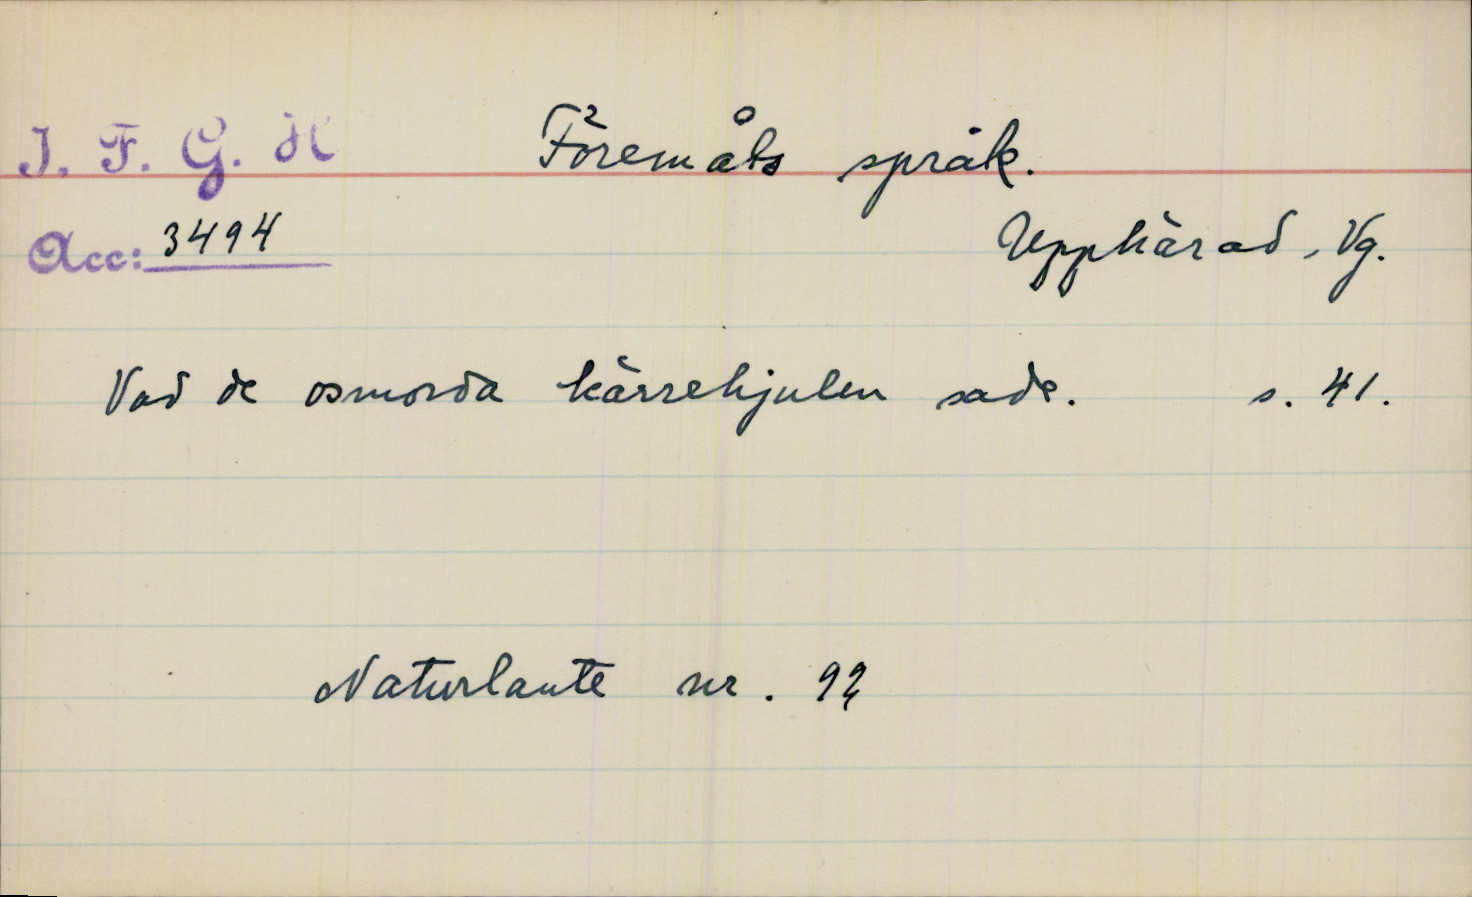 I. F. G. H
Föremåls språk.
Acc: 3494
Upphärad, Vg.
Vad de osmorda kärrehjulen sade. s. 41.
Naturlaute nr. 92